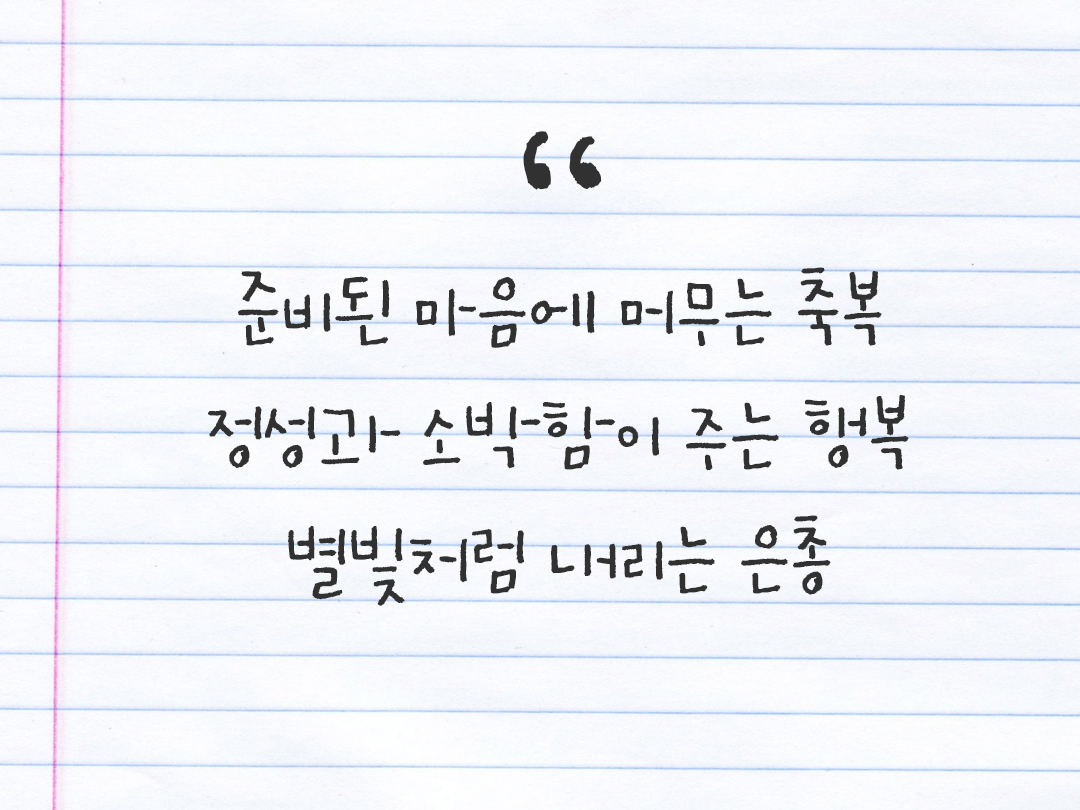 “
준비된 마음에 머무는 축복
정성과 소박함이 주는 행복
별빛처럼 내리는 은총